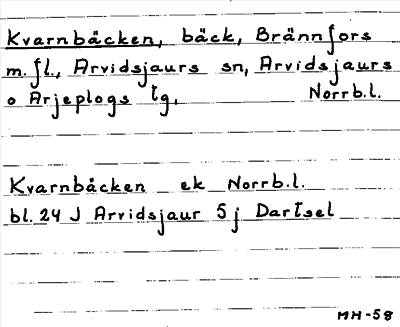 Kvarnbäcken, bäck, Brännfors
m.fl., Arvidsjaurs sn, Arvidsjaurs
o Arjeplogs tg. Norrb.l.
Kvarnbäcken ek Norrb.l.
bl. 24 J Arvidsjaur 5j Dartsel
MH-58